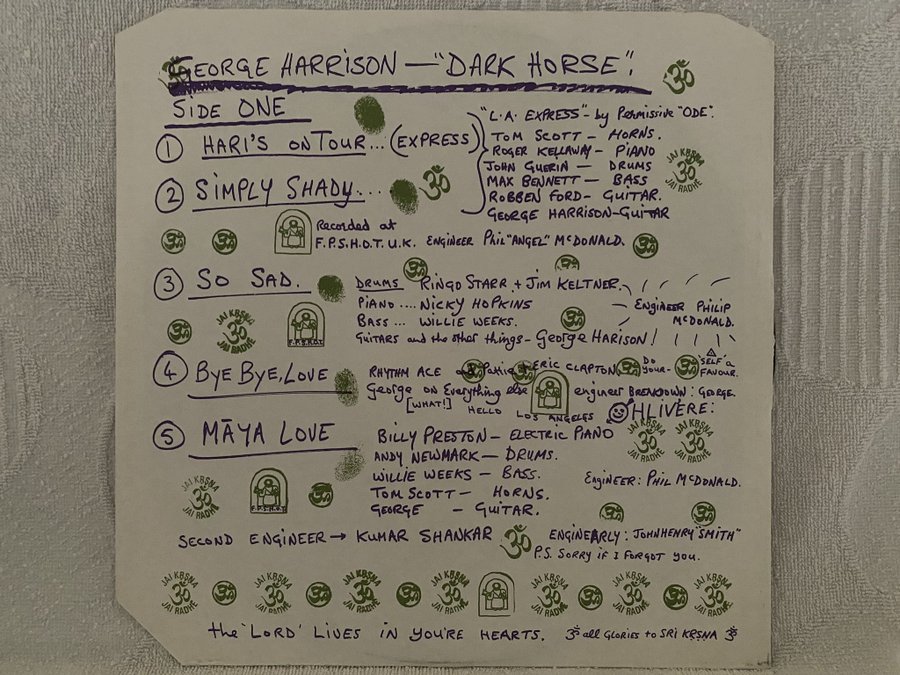 GEORGE HARRISON — "DARK HORSE".
SIDE ONE
① HARI'S ON TOUR... (EXPRESS)
"L.A. EXPRESS" - by Permissive "ODE".
TOM SCOTT — HORNS.
ROGER KELLAWAY — PIANO
JOHN GUERIN — DRUMS
MAX BENNETT — BASS
ROBBEN FORD — GUITAR.
GEORGE HARRISON - GuiTAR
② SIMPLY SHADY...
Recorded at
F.P.S.H.O.T. U.K. ENGINEER Phil "ANGEL" McDONALD.
③ SO SAD.
DRUMS RINGO STARR + JIM KELTNER.
PIANO .... NICKY HOPKINS
BASS ... WILLIE WEEKS.
GUITARS and the other things - George HARISON!
ENGINEER PHILIP
McDONALD.
④ BYE BYE, LOVE
RHYTHM ACE and Pattie + ERIC CLAPTON
DO
YOUR-
SELF a
FAVOUR.
George on Everything else
engineer BREAKDOWN: GEORGE.
[WHAT!] HELLO LOS ANGELES
OHLIVERE:
⑤ MĀYA LOVE
BILLY PRESTON — ELECTRIC PIANO
ANDY NEWMARK — DRUMS.
WILLIE WEEKS — BASS.
TOM SCOTT — HORNS.
GEORGE — GUITAR.
ENGINEER: PHIL McDONALD.
SECOND ENGINEER → KUMAR SHANKAR
ENGINEARLY: JOHNHENRY "SMITH"
P.S. SORRY IF I FORGOT YOU.
JAI KṚṢNA
ॐ
JAI RADHE
F.P.S.H.O.T.
the 'LORD' LIVES IN YOU'RE HEARTS. ॐ all GLORIES to SRI KṚṢNA ॐ